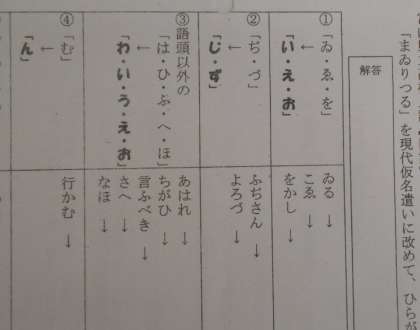 「まゐりつる」を現代仮名遣いに改めて、ひらが
解答
①
「ゐ・ゑ・を」
←
「い・え・お」
ゐる ↓
こゑ ↓
をかし ↓
②
「ぢ・づ」
←
「じ・ず」
ふぢさん ↓
よろづ ↓
③
語頭以外の
「は・ひ・ふ・へ・ほ」
←
「わ・い・う・え・お」
あはれ ↓
ちがひ ↓
言ふべき ↓
さへ ↓
なほ ↓
④
「む」
←
「ん」
行かむ ↓